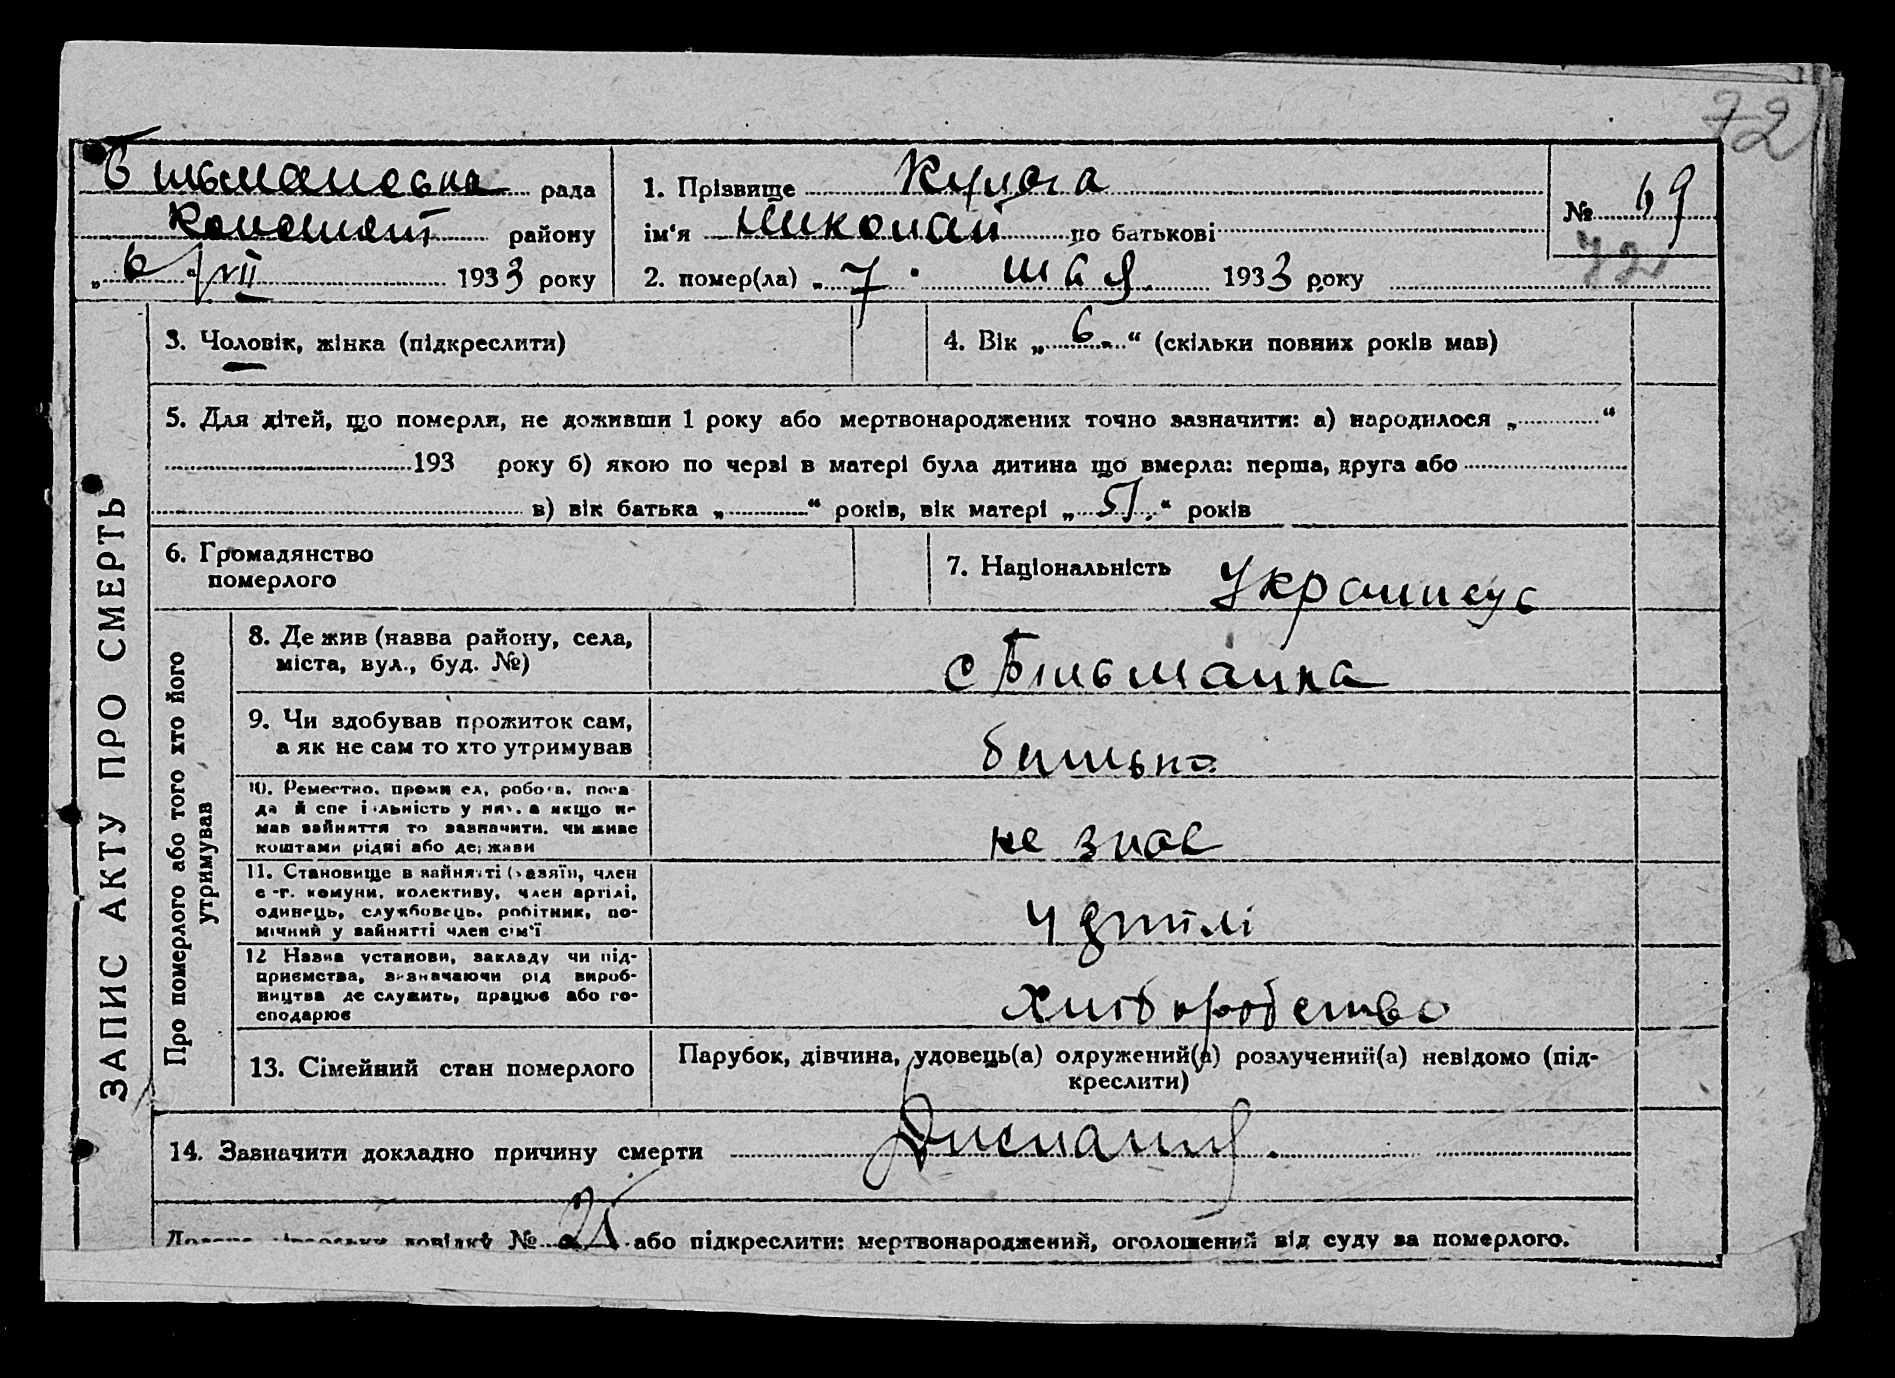 72
Більманська рада
району
„6“ VII 1933 року
1. Прізвище
ім'я Николай по батькові
2. помер(ла) „7. мая 1933 року
№ 69
72
ЗАПИС АКТУ ПРО СМЕРТЬ
3. Чоловік, жінка (підкреслити)
4. Вік „6.“ (скільки повних років мав)
5. Для дітей, що померли, не доживши 1 року або мертвонароджених точно зазначити: а) народилося „ “
193 року б) якою по черві в матері була дитина що вмерла: перша, друга або
в) вік батька „ “ років, вік матері „51.“ років
6. Громадянство
померлого
7. Національність Украинець
Про померлого або того хто його
утримував
8. Де жив (назва району, села,
міста, вул., буд. №)
с Більманка
9. Чи здобував прожиток сам,
а як не сам то хто утримував
батько
10. Реместно, промисел, робота, поса
да й спеціальність у них, а якщо не
мав зайняття то зазначити, чи живе
коштами рідні або держави
не знає
11. Становище в зайнятті (хазяїн, член
с.-г. комуни, колективу, член артілі,
одинець, службовець, робітник, по-
мічний у зайнятті член сім'ї
у артілі
12 Назва установи, закладу чи під-
приємства, визначаючи рід вироб-
ництва де служить, працює або го-
сподарює
13. Сімейний стан померлого
Парубок, дівчина, удовець(а) одружений(а) розлучений(а) невідомо (під-
креслити)
14. Зазначити докладно причину смерти
довідку № або підкреслити: мертвонароджений, оголошений від суду за померлого.